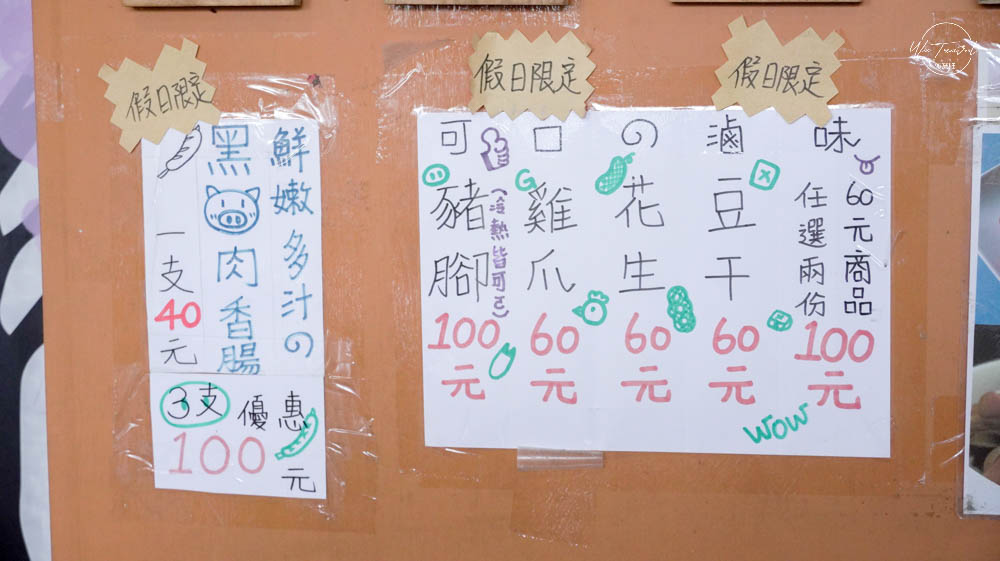 假日限定
鮮嫩多汁の
黑肉香腸
一支40元
3支優惠
100元
假日限定
假日限定
可口の滷味
豬腳100元
(冷熱皆可ㄛ)
雞爪60元
花生60元
豆干60元
60元商品
任選兩份
100元
WOW